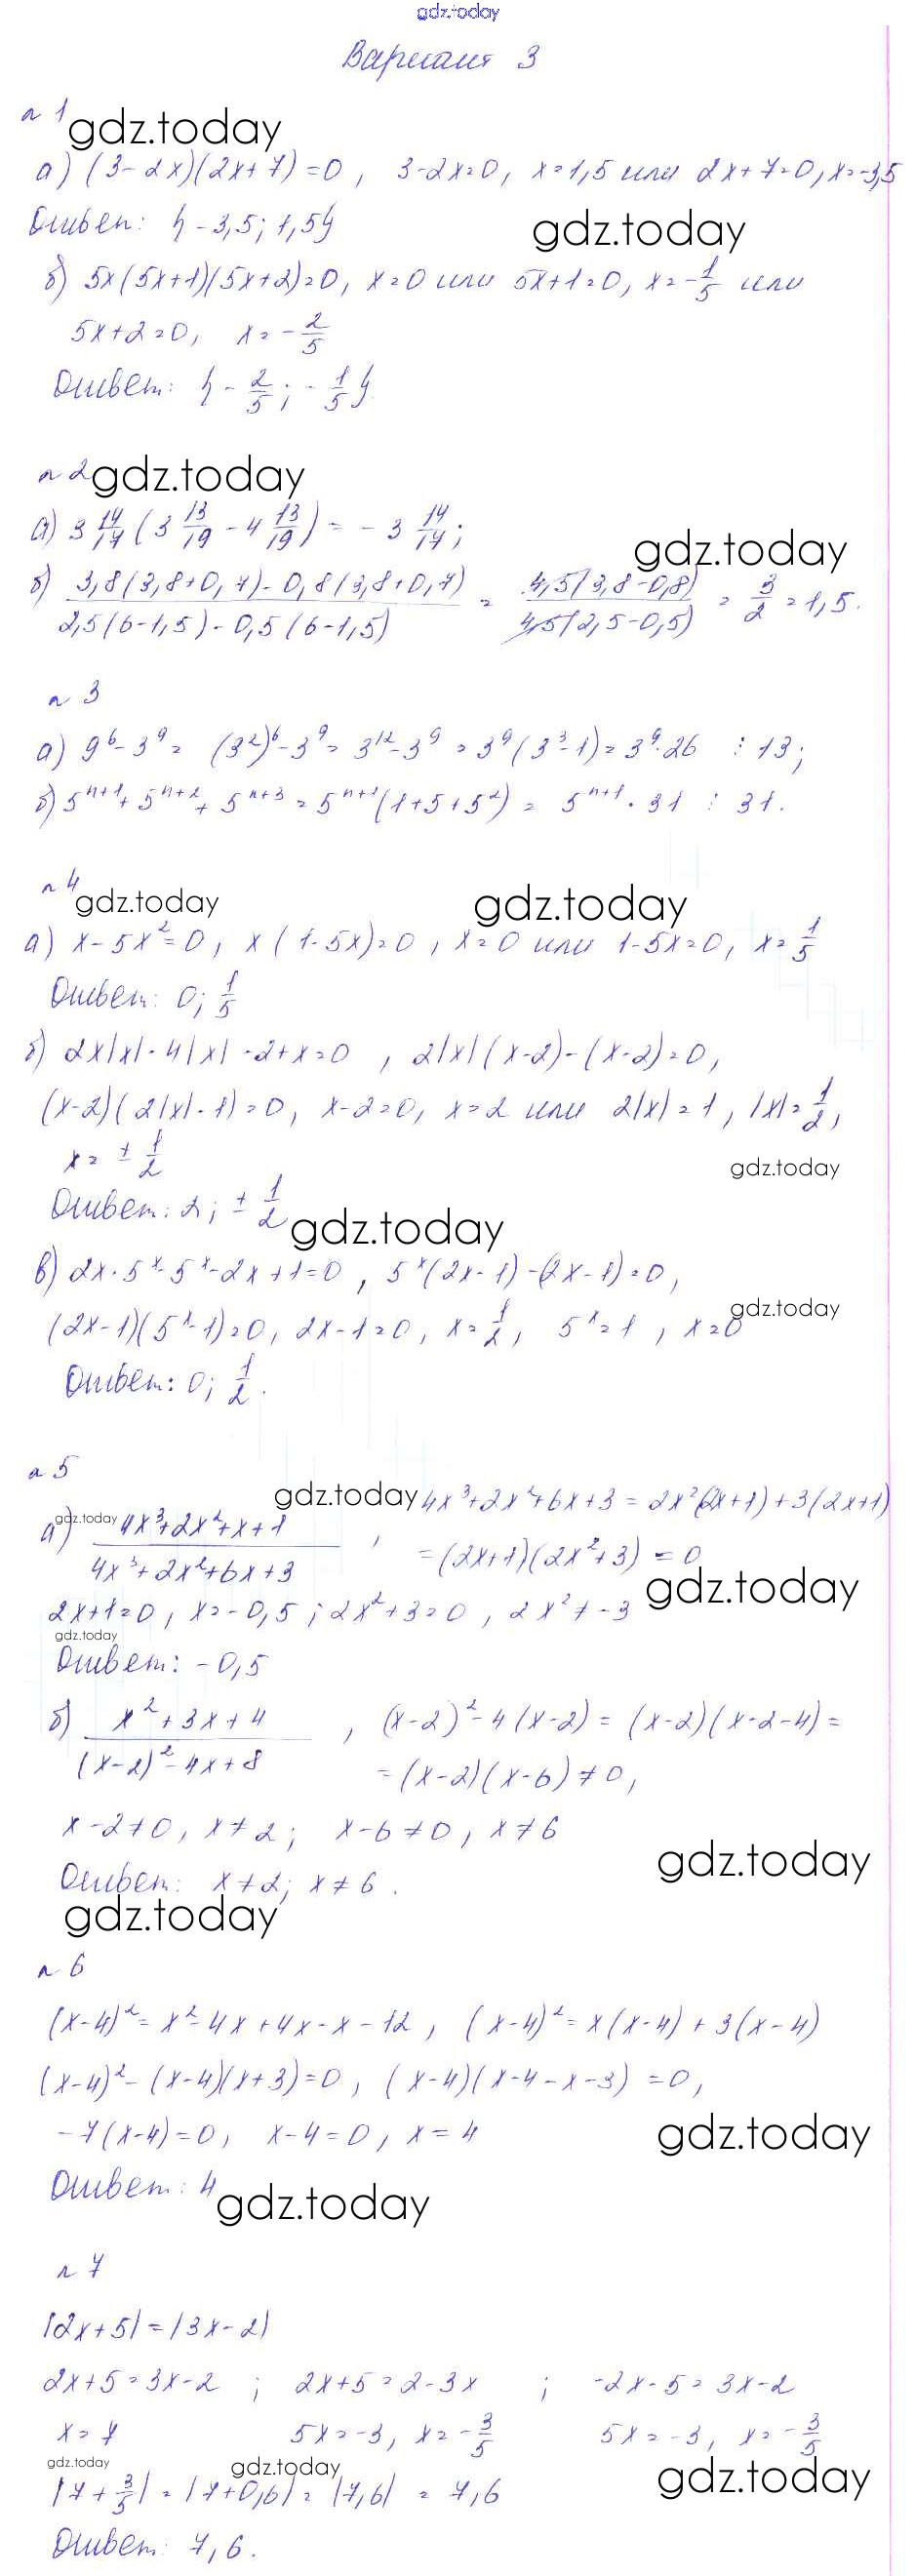 gdz.today
Вариант 3
n 1 gdz.today
а) (3-2x)(2x+7)=0, 3-2x=0, x=1,5 или 2x+7=0, x=-3,5
Ответ: {-3,5; 1,5} gdz.today
б) 5x(5x+1)(5x+2)=0, x=0 или 5x+1=0, x=-1/5 или
5x+2=0, x=-2/5
Ответ: {-2/5; -1/5}
n 2 gdz.today
а) 3 14/17 (3 13/19 - 4 13/19) = -3 14/17; gdz.today
б) (3,8(3,8+0,7)-0,8(3,8+0,7))/(2,5(6-1,5)-0,5(6-1,5)) = (4,5(3,8-0,8))/(4,5(2,5-0,5)) = 3/2 = 1,5.
n 3
а) 9^6-3^9 = (3^2)^6-3^9 = 3^12-3^9 = 3^9(3^3-1) = 3^9·26 ⋮ 13;
б) 5^(n+1)+5^(n+2)+5^(n+3) = 5^(n+1)(1+5+5^2) = 5^(n+1)·31 ⋮ 31.
n 4 gdz.today gdz.today
а) x-5x^2=0, x(1-5x)=0, x=0 или 1-5x=0, x=1/5
Ответ: 0; 1/5
б) 2x|x|-4|x|-2+x=0, 2|x|(x-2)-(x-2)=0,
(x-2)(2|x|-1)=0, x-2=0, x=2 или 2|x|=1, |x|=1/2,
x=±1/2 gdz.today
Ответ: 2; ±1/2 gdz.today
в) 2x·5^x-5^x-2x+1=0, 5^x(2x-1)-(2x-1)=0,
gdz.today
(2x-1)(5^x-1)=0, 2x-1=0, x=1/2, 5^x=1, x=0
Ответ: 0; 1/2.
n 5
gdz.today 4x^3+2x^2+6x+3 = 2x^2(2x+1)+3(2x+1)
gdz.today
а) (4x^3+2x^2+x+1)/(4x^3+2x^2+6x+3), =(2x+1)(2x^2+3)=0
gdz.today
2x+1=0, x=-0,5; 2x^2+3=0, 2x^2≠-3
gdz.today
Ответ: -0,5
б) (x^2+3x+4)/((x-2)^2-4x+8), (x-2)^2-4(x-2) = (x-2)(x-2-4) =
=(x-2)(x-6)≠0,
x-2≠0, x≠2; x-6≠0, x≠6
gdz.today
Ответ: x≠2; x≠6.
gdz.today
n 6
(x-4)^2=x^2-4x+4x-x-12, (x-4)^2=x(x-4)+3(x-4)
(x-4)^2-(x-4)(x+3)=0, (x-4)(x-4-x-3)=0,
-7(x-4)=0, x-4=0, x=4 gdz.today
Ответ: 4 gdz.today
n 7
|2x+5|=|3x-2|
2x+5=3x-2; 2x+5=2-3x; -2x-5=3x-2
x=7 5x=-3, x=-3/5 5x=-3, x=-3/5
gdz.today gdz.today gdz.today
|7+3/5|=|7+0,6|=|7,6|=7,6
Ответ: 7,6.